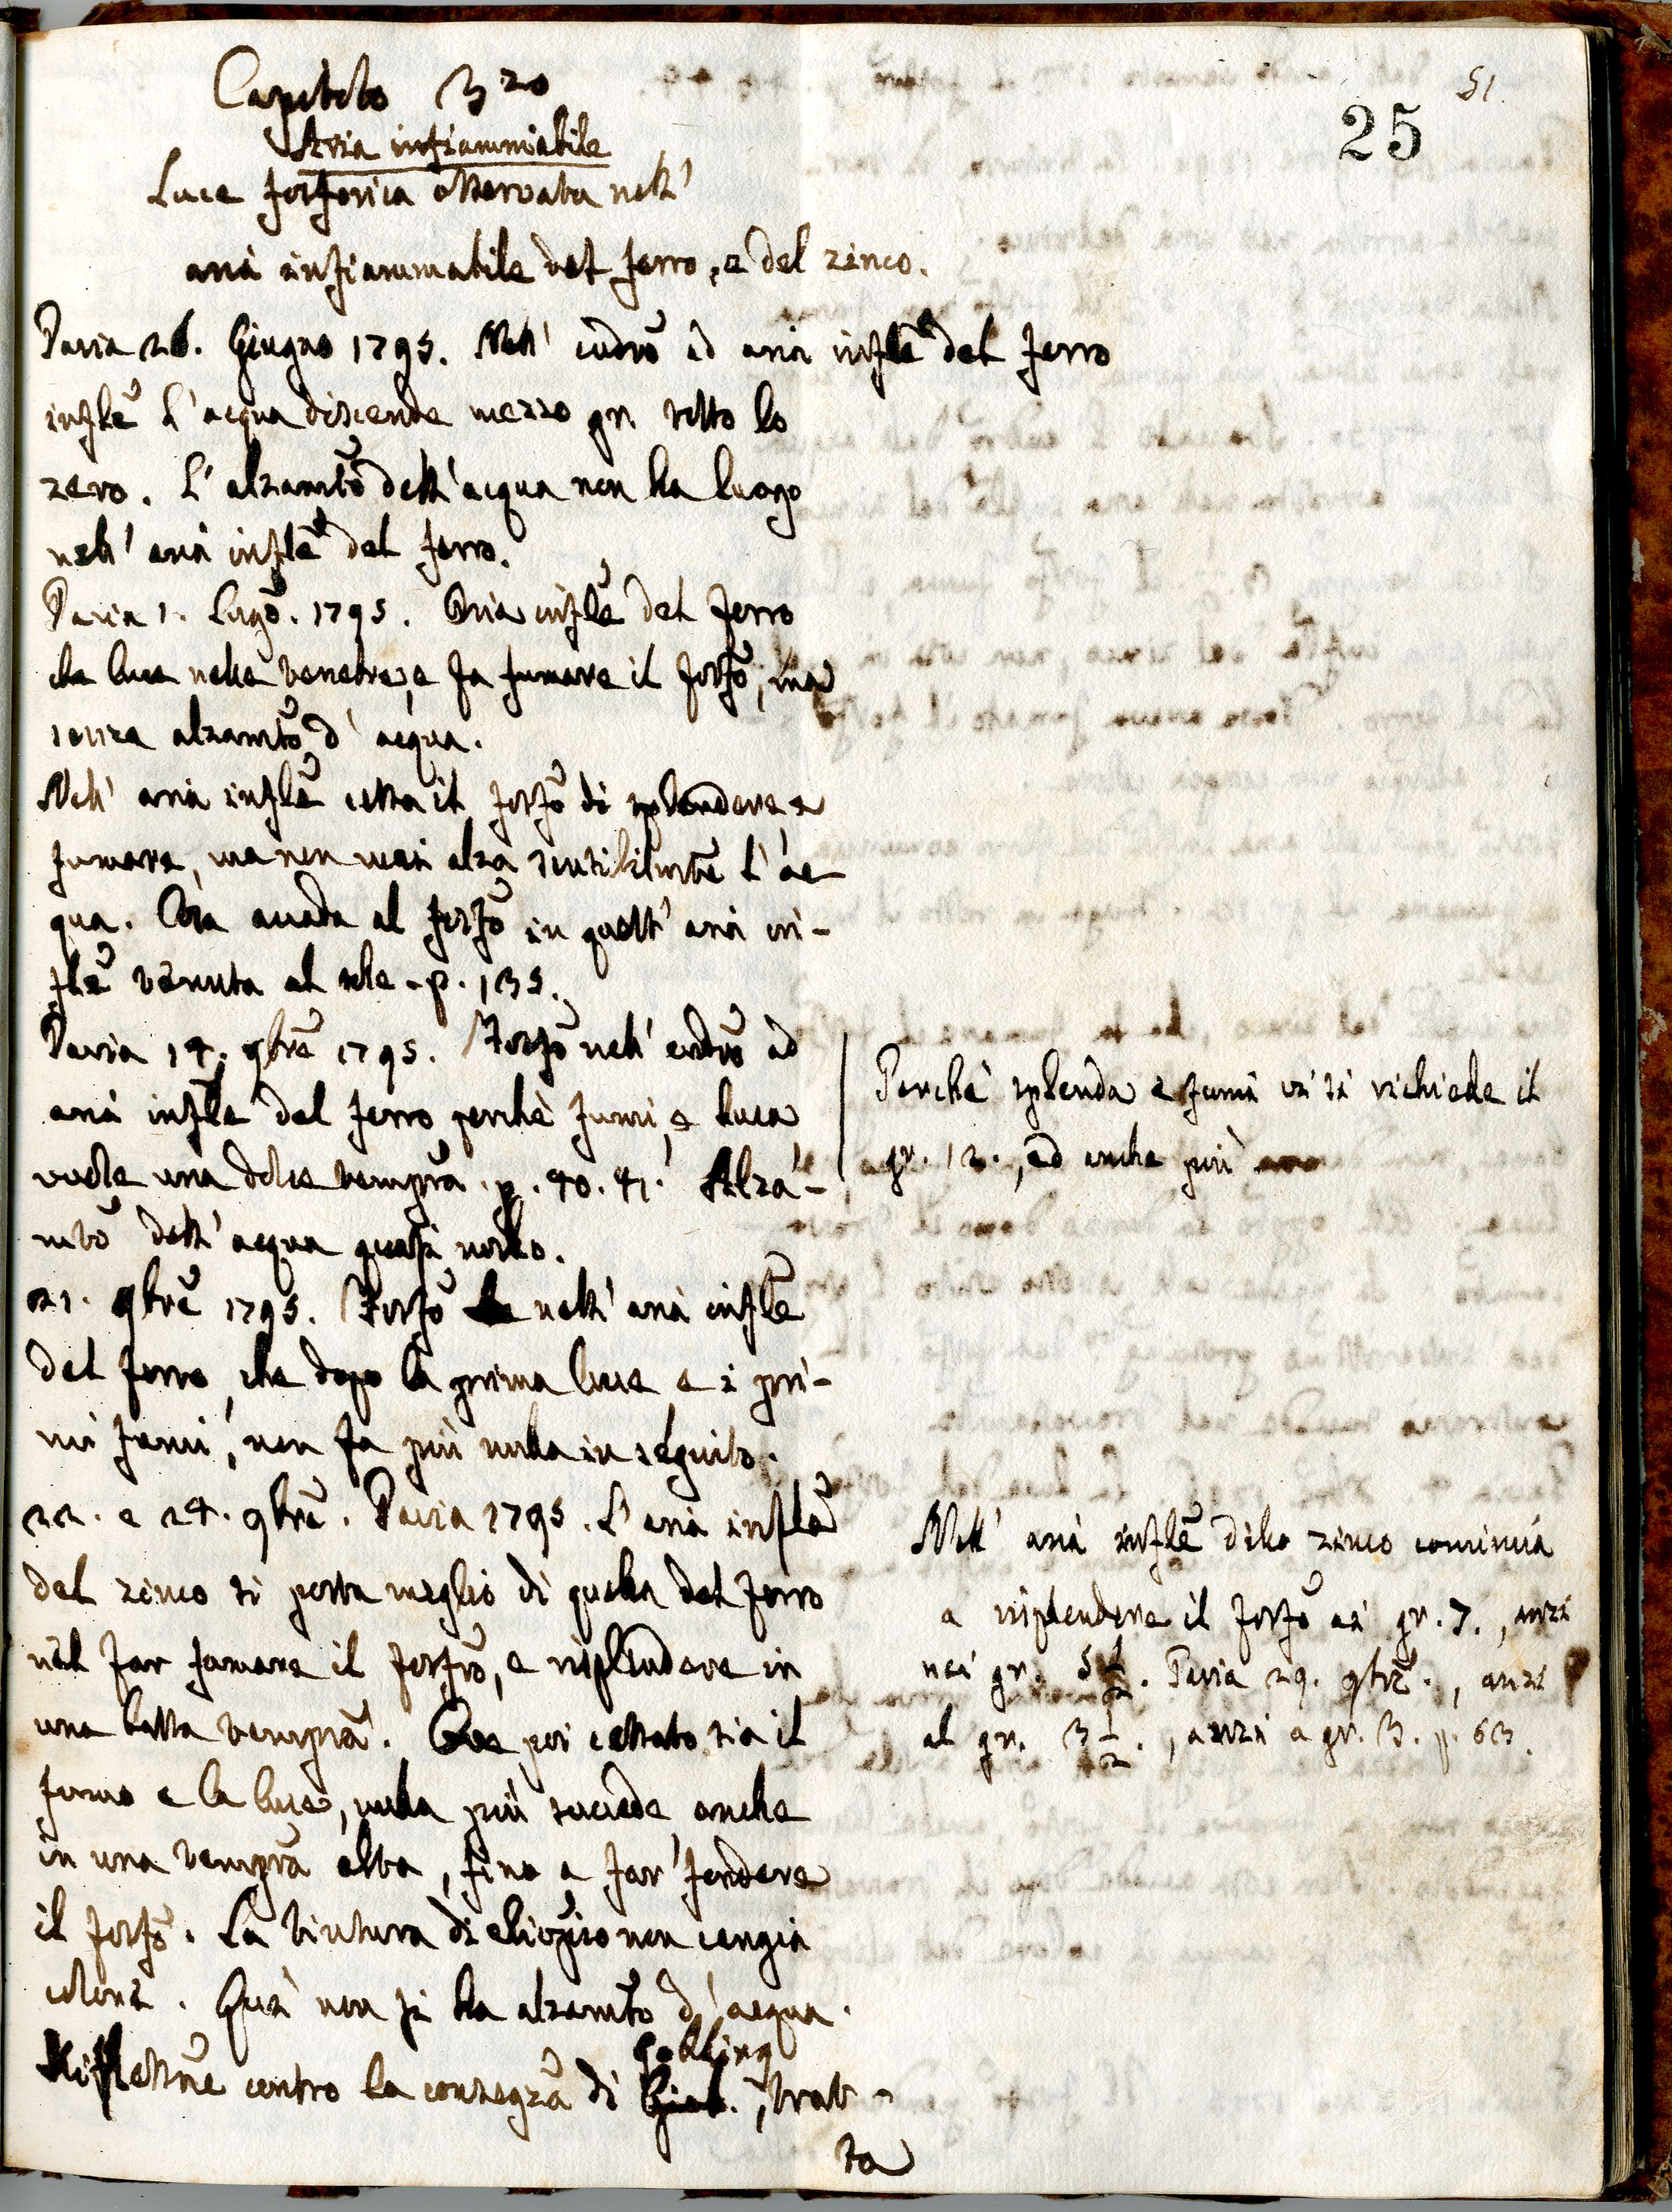 51.
25
Capitolo 3zo
Aria infiammabile
Luce fosforica osservata nell'
aria infiammabile del ferro, e del zinco.
Pavia 26. Giugno 1795. Nell' eudro ad aria infle del ferro
infle l'acqua discende mezzo gr. sotto lo
zero. L' alzamto dell'acqua non ha luogo
nell' aria infle del ferro.
Pavia 1. Lugo. 1795. Aria infle del ferro
che luce nelle tenebre, e fa fumare il fosfo, ma
senza alzamto d' acqua.
Nell' aria infle cessa il fosfo di splendere e
fumare, ma non mai alza sensibilmte l' ac-
qua. Cosa accade al fosfo in quest' aria in-
fle tenuta al sole. p. 135.
Pavia 14. 9bre 1795. Fosfo nell' eudro ad
aria infle del ferro perchè fumi, e luca
vuole una dolce tempra. p. 40. 41. Alza-
mto dell' acqua quasi nullo.
Perchè splenda e fumi vi si richiede il
gr. 12., ed anche più
21. 9bre 1795. Fosfo nell' aria infle
del ferro, che dopo la prima luce e i pri-
mi fumi, non fa più nulla in seguito.
22. e 24. 9bre. Pavia 1795. L' aria infle
del zinco si porta meglio di quella del ferro
nel far fumare il fosfro, e risplendere in
una bassa tempra. Che poi cessato sia il
fumo e la luce, nulla più succede anche
in una tempra alta, fino a far fondere
il fosfo. La tintura di eliopio non cangia
colore. Quì non si ha alzamto d' acqua.
Nell' aria infle dello zinco comincia
a risplendere il fosfo ai gr. 7., anzi
nei gr. 5 1/2. Pavia 29. 9bre., anzi
al gr. 3 1/2., anzi a gr. 3. p. 63.
Gottling
Riflessne contro la consegza di Giob., trat-
ta